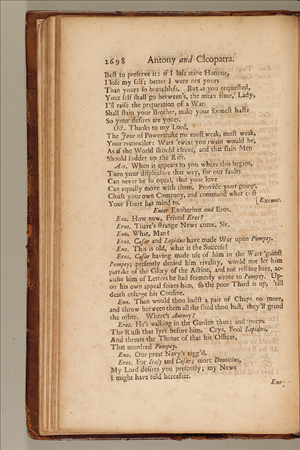 2698 Antony and Cleopatra.
Best to preserve it: if I lose mine Honour,
I lose my self; better I were not yours
Than yours so branchless. But as you requested,
Your self shall go between's, the mean time, Lady,
I'll raise the preparation of a War
Shall stain your Brother, make your soonest haste
So your desires are yours.
Oct. Thanks to my Lord,
The Jove of Power make me most weak, most weak,
Your reconciler: Wars 'twixt you twain would be,
As if the World should cleave, and that slain Men
Should sodder up the Rift.
Ant. When it appears to you where this begins,
Turn your displeasure that way, for our faults
Can never be so equal, that your love
Can equally move with them. Provide your going,
Chuse your own Company, and command what cost
Your Heart has mind to. [Exeunt.
Enter Enobarbus and Eros.
Eno. How now, Friend Eros?
Eros. There's strange News come, Sir.
Eno. What, Man?
Eros. Cæsar and Lepidus have made War upon Pompey.
Eno. This is old, what is the Success?
Eros. Cæsar having made use of him in the Wars 'gainst
Pompey; presently denied him rivality, would not let him
partake of the Glory of the Action, and not resting here, ac-
cuses him of Letters he had formerly wrote to Pompey. Up-
on his own appeal seizes him, so the poor Third is up, 'till
death enlarge his Confine.
Eno. Then would thou hadst a pair of Chaps no more,
and throw between them all the food thou hast, they'll grind
the other. Where's Antony?
Eros. He's walking in the Garden thus; and spurns
The Rush that lyes before him. Crys, Fool Lepidus,
And threats the Throat of that his Officer,
That murdred Pompey.
Eno. Our great Navy's rigg'd.
Eros. For Italy and Cæsar; more Domitius,
My Lord desires you presently; my News
I might have told hereafter.
Eno.